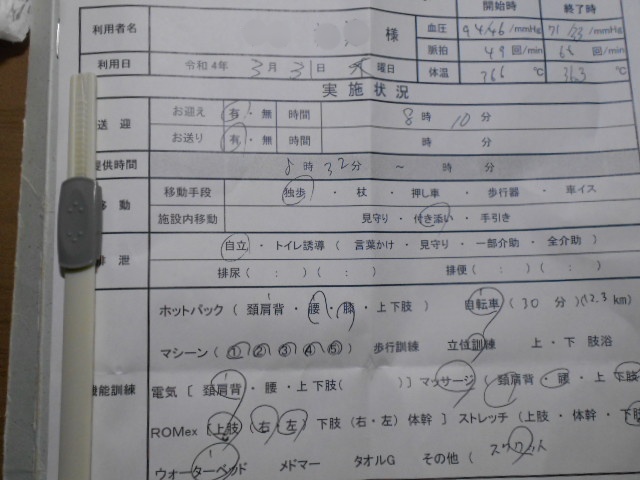 開始時 終了時
利用者名 様 血圧 94/46/mmHg /mmHg
脈拍 49 回/min 回/min
利用日 令和4年 3月31日 木曜日 体温 36.6 ℃ 36.3 ℃
実施状況
送迎 お迎え 有・無 時間 8時 10分
お送り 有・無 時間 時 分
提供時間 8時32分 ~ 時 分
移動 移動手段 独歩 ・ 杖 ・ 押し車 ・ 歩行器 ・ 車イス
施設内移動 見守り ・ 付き添い ・ 手引き
排泄 自立 ・ トイレ誘導 ( 言葉かけ ・ 見守り ・ 一部介助 ・ 全介助 )
排尿 ( : ) ( : ) 排便 ( : ) ( : )
ホットパック ( 頚肩背 ・ 腰 ・ 膝 ・ 上下肢 ) 自転車 ( 30 分 ) (12.3 km)
マシーン ( ① ② ③ ④ ⑤ ) 歩行訓練 立位訓練 上 ・ 下肢浴
機能訓練 電気 [ 頚肩背 ・ 腰 ・ 上下肢( )] マッサージ ( 頚肩背 ・ 腰 ・ 上 下肢
ROMex [ 上肢 (右・左) 下肢 (右・左) 体幹 ] ストレッチ (上肢 ・ 体幹 ・ 下肢
ウォーターベッド メドマー タオルG その他 ( スクワット